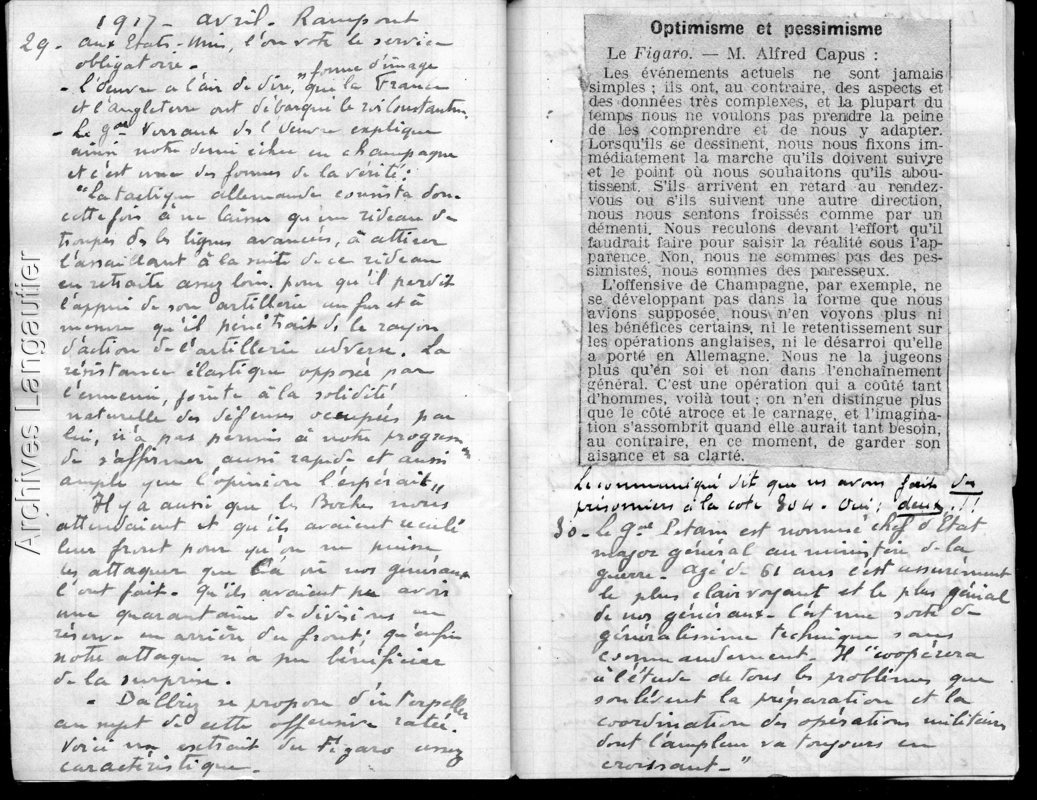 1917 - avril - Rampont
29 - aux Etats-Unis, l'on vote le service
obligatoire -
- L'Oeuvre a l'air de dire, "forme d'image
que la France
et l'Angleterre ont débarqué le roi Constantin.
- Le gal Verraux de l'Oeuvre explique
ainsi notre demi échec en champagne
et c'est une des formes de la vérité :
"La tactique allemande consista donc
cette fois à ne laisser qu'un rideau de
troupes ds les lignes avancées, à attirer
l'assaillant à la suite de ce rideau
en retraite assez loin pour qu'il perdît
l'appui de son artillerie au fur et à
mesure qu'il pénétrait ds le rayon
d'action de l'artillerie adverse. La
résistance élastique opposée par
l'ennemi, jointe à la solidité
naturelle des défenses occupées par
lui, n'a pas permis à notre progression
de s'affirmer aussi rapide et aussi
ample que l'opinion l'espérait"
Il y a aussi que les Boches nous
attendaient et qu'ils avaient reculé
leur front pour qu'on ne puisse
les attaquer que là où nos généraux
l'ont fait - qu'ils avaient pu avoir
une quarantaine de divisions en
réserve en arrière du front ; qu'enfin
notre attaque n'a pu bénéficier
de la surprise.
- Dalbiez se propose d'interpeller
au sujet de cette offensive ratée.
Voici un extrait du Figaro assez
caractéristique -
Archives Langautier
Optimisme et pessimisme
Le Figaro. — M. Alfred Capus :
Les événements actuels ne sont jamais
simples ; ils ont, au contraire, des aspects et
des données très complexes, et la plupart du
temps nous ne voulons pas prendre la peine
de les comprendre et de nous y adapter.
Lorsqu'ils se dessinent, nous nous fixons im-
médiatement la marche qu'ils doivent suivre
et le point où nous souhaitons qu'ils abou-
tissent. S'ils arrivent en retard au rendez-
vous ou s'ils suivent une autre direction,
nous nous sentons froissés comme par un
démenti. Nous reculons devant l'effort qu'il
faudrait faire pour saisir la réalité sous l'ap-
parence. Non, nous ne sommes pas des pes-
simistes, nous sommes des paresseux.
L'offensive de Champagne, par exemple, ne
se développant pas dans la forme que nous
avions supposée, nous n'en voyons plus ni
les bénéfices certains, ni le retentissement sur
les opérations anglaises, ni le désarroi qu'elle
a porté en Allemagne. Nous ne la jugeons
plus qu'en soi et non dans l'enchaînement
général. C'est une opération qui a coûté tant
d'hommes, voilà tout ; on n'en distingue plus
que le côté atroce et le carnage, et l'imagina-
tion s'assombrit quand elle aurait tant besoin,
au contraire, en ce moment, de garder son
aisance et sa clarté.
Le communiqué dit que ns avons fait des
prisonniers à la cote 304. Oui ; deux !!!
30 - Le gal Pétain est nommé chef d'Etat
major général au ministère de la
guerre - Agé de 61 ans c'est assurément
le plus clairvoyant et le plus génial
de nos généraux - C'est une sorte de
généralissime technique sans
commandement - Il "coopérera
à l'étude de tous les problèmes que
soulèvent la préparation et la
coordination des opérations militaires
dont l'ampleur va toujours en
croissant -"